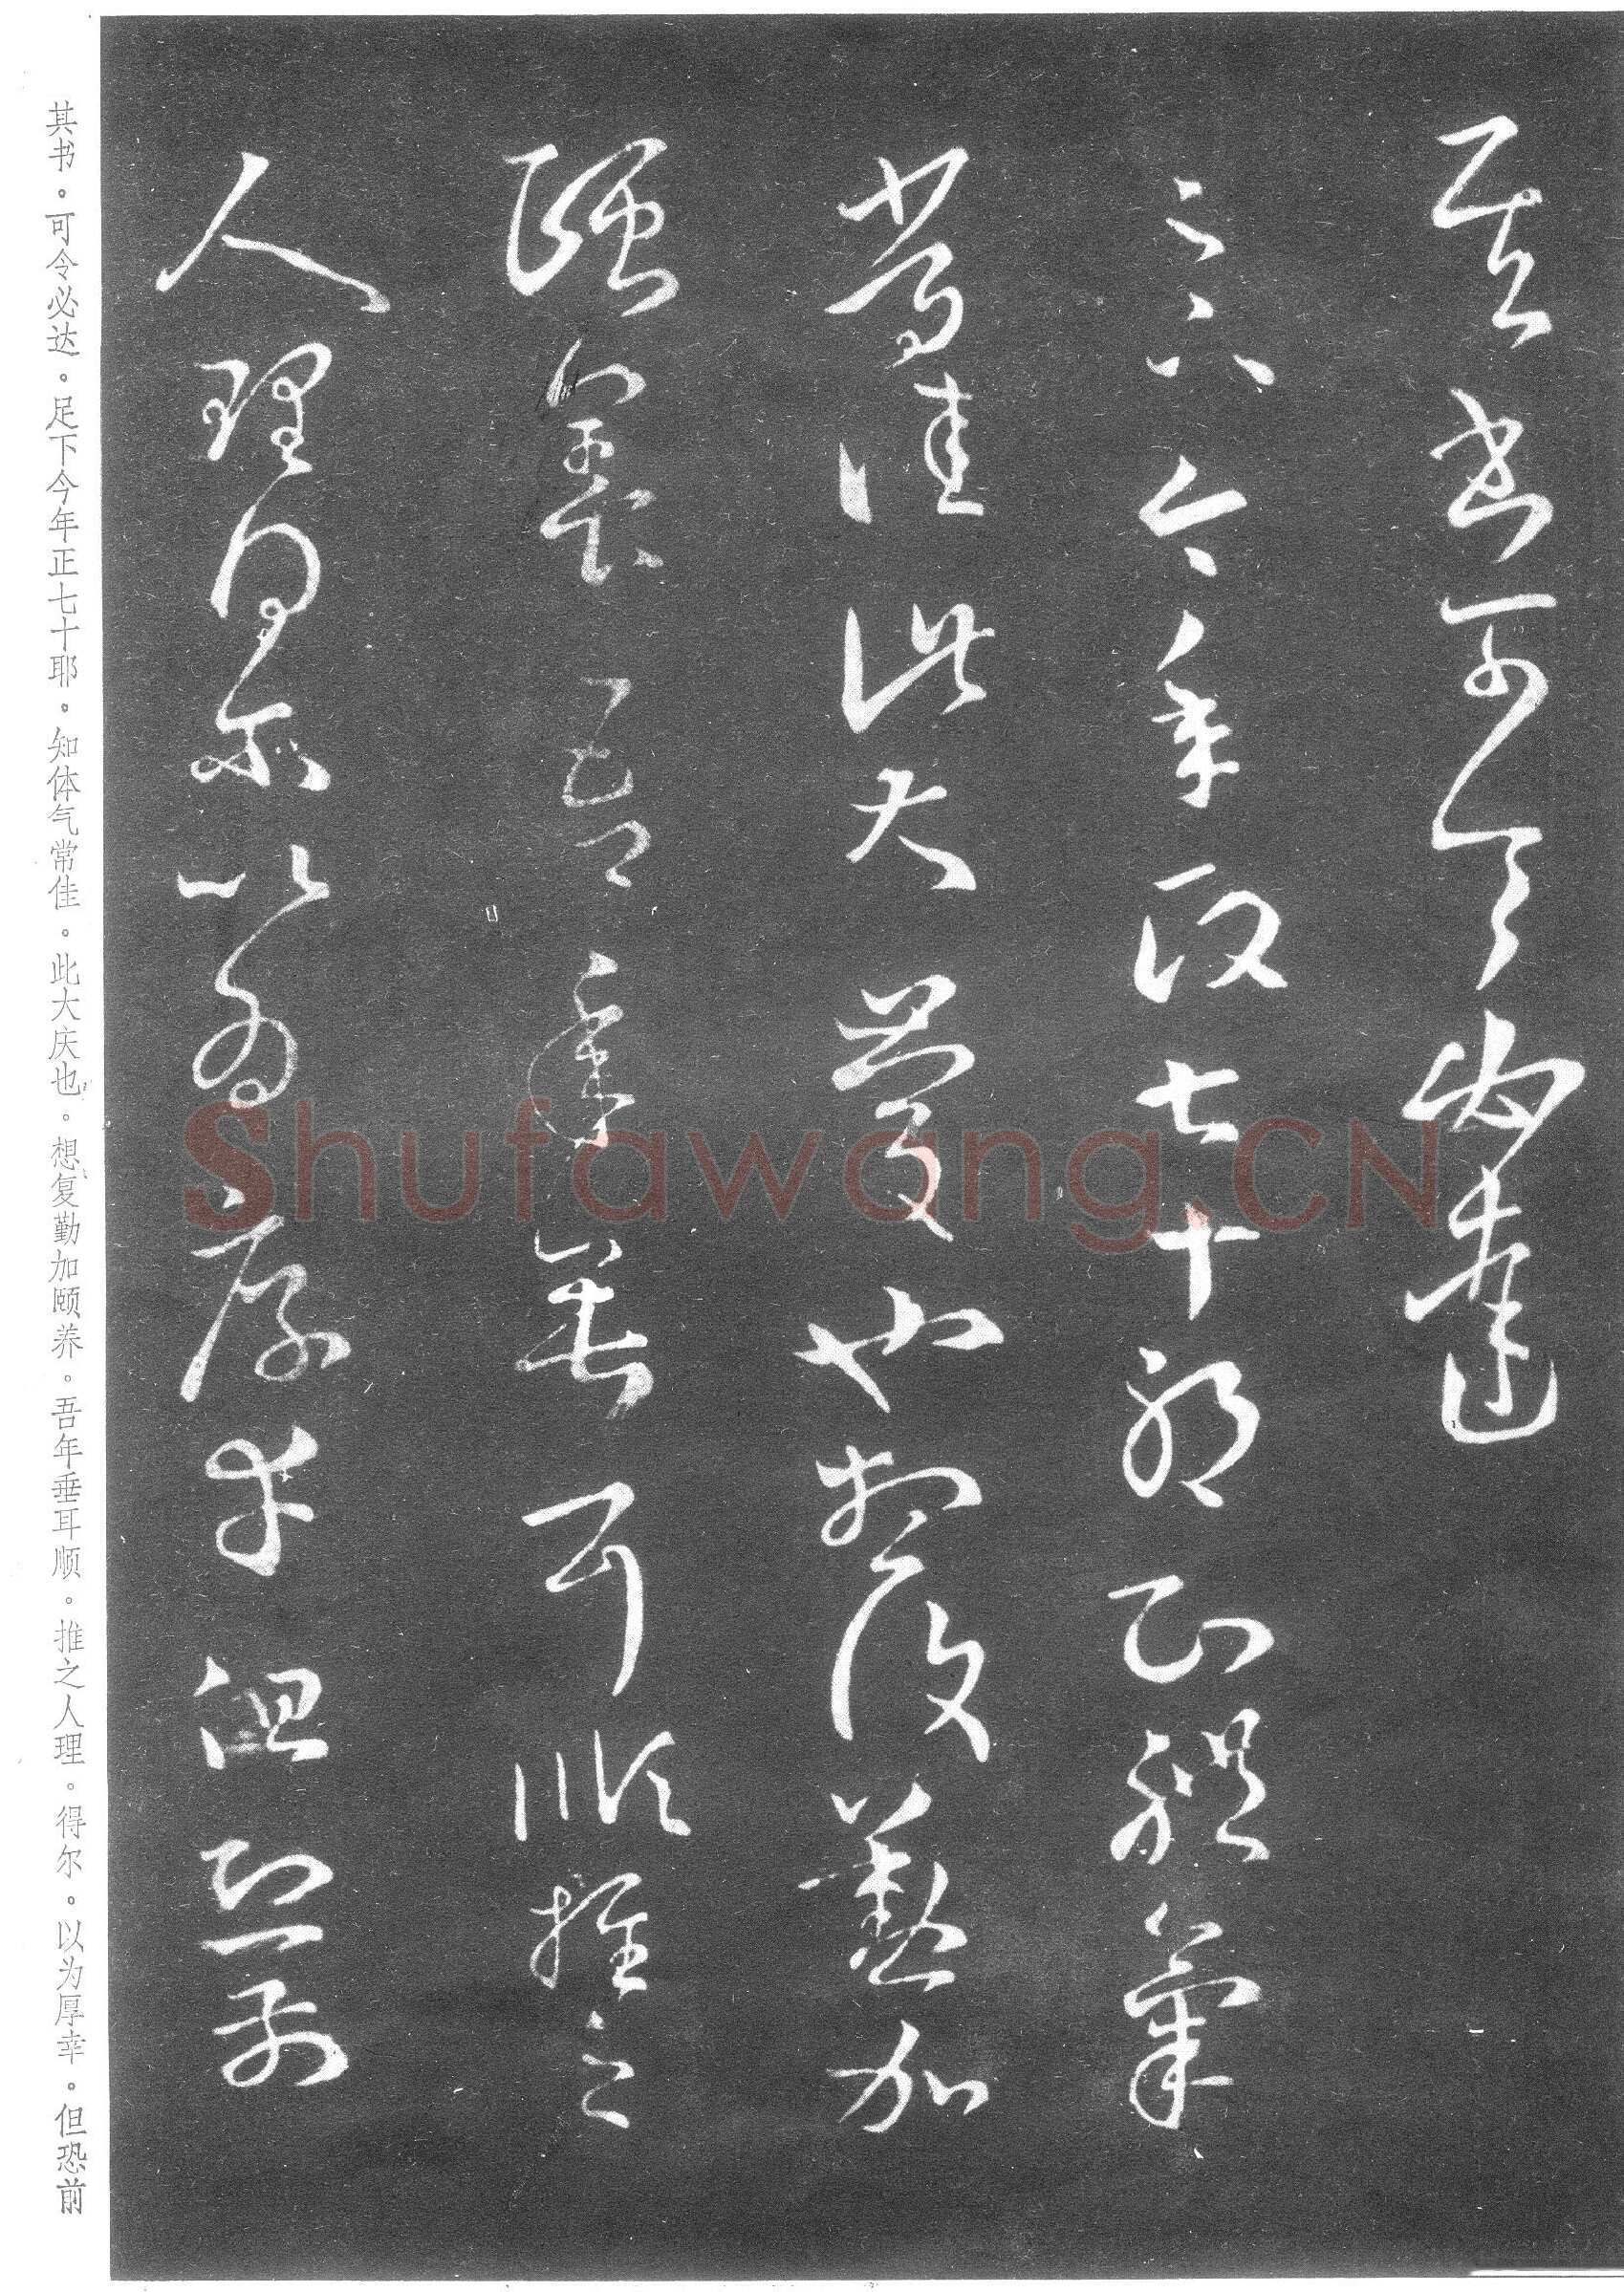 其书可令必达
足下今年政七十耶知体气
常佳此大庆也想复勤加
颐养吾年垂耳顺推之
人理得尔以为厚幸但恐前
其书。可令必达。足下今年正七十耶。知体气常佳。此大庆也。想复勤加颐养。吾年垂耳顺。推之人理。得尔。以为厚幸。但恐前
Shufawang.CN